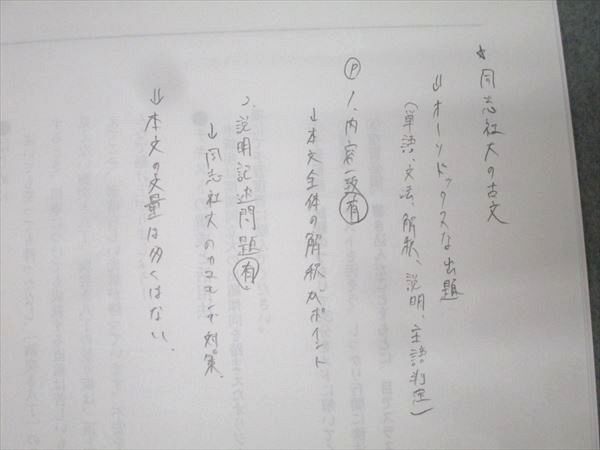 ☆同志社大の古文
↓オーソドックスな出題
(単語、文法、解釈、説明、主語判定)
Ⓟ 1、内容一致有
↓本文全体の解釈がポイント
2、説明記述問題有
↓同志社大のカコモンで対策。
↓本文の文量は多くはない、